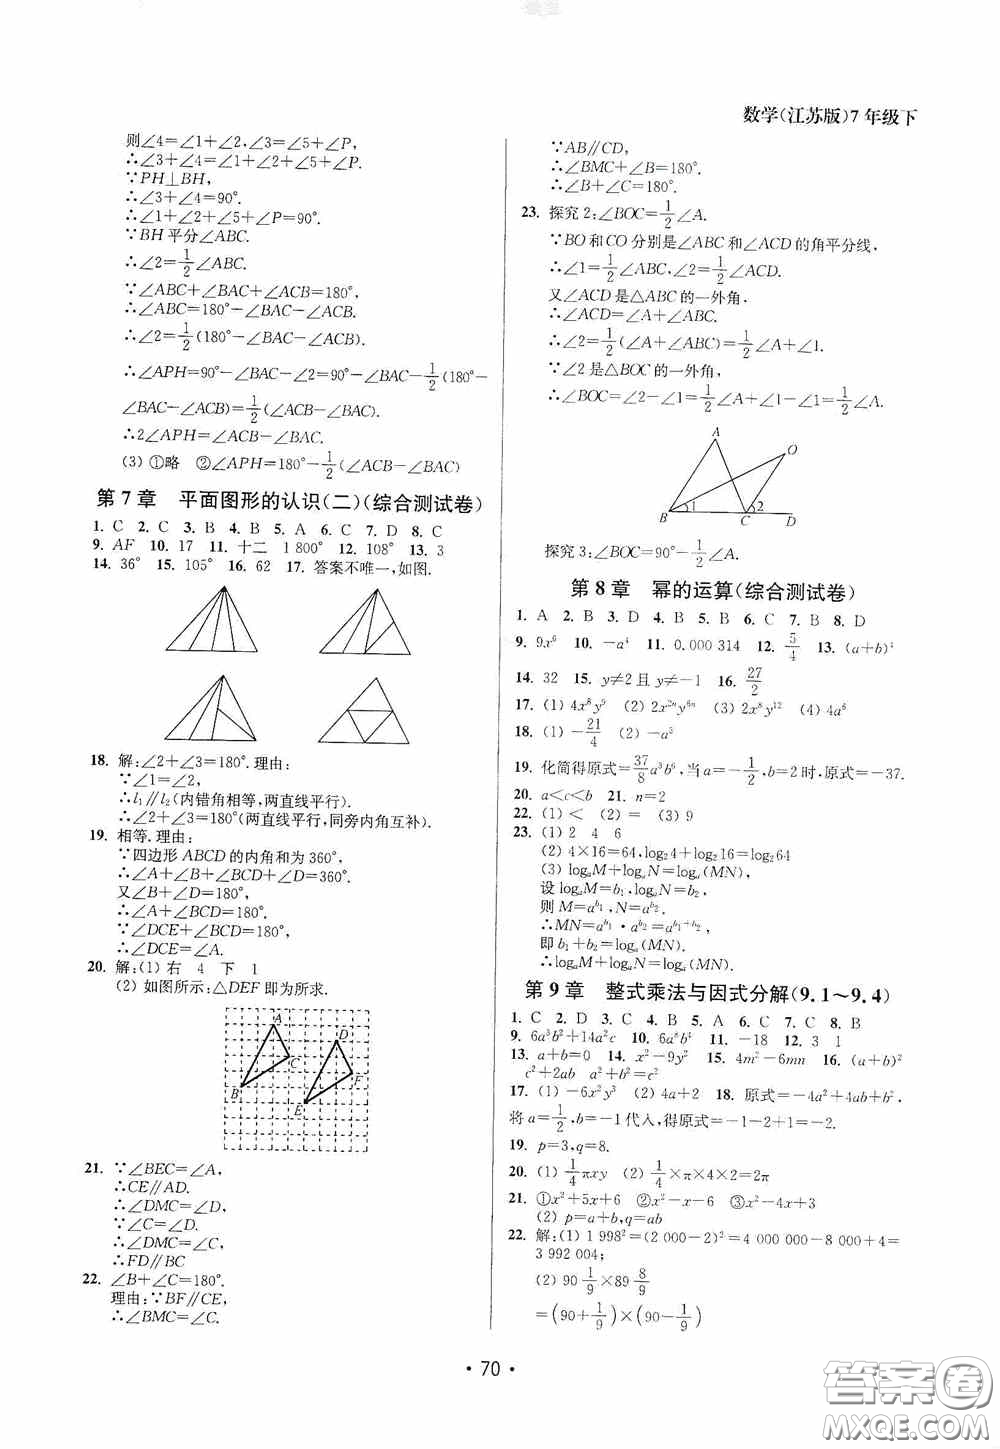 数学(江苏版)7年级下
则∠4=∠1+∠2,∠3=∠5+∠P.
∴∠3+∠4=∠1+∠2+∠5+∠P.
∵PH⊥BH,
∴∠3+∠4=90°.
∴∠1+∠2+∠5+∠P=90°.
∵BH平分∠ABC.
∴∠2=1/2∠ABC.
∵∠ABC+∠BAC+∠ACB=180°,
∴∠ABC=180°-∠BAC-∠ACB.
∴∠2=1/2(180°-∠BAC-∠ACB).
∴∠APH=90°-∠BAC-∠2=90°-∠BAC-1/2(180°-
∠BAC-∠ACB)=1/2(∠ACB-∠BAC).
∴2∠APH=∠ACB-∠BAC.
(3) ①略 ②∠APH=180°-1/2(∠ACB-∠BAC)
第7章 平面图形的认识(二)(综合测试卷)
1. C 2. C 3. B 4. B 5. A 6. C 7. D 8. C
9. AF 10. 17 11. 十二 1 800° 12. 108° 13. 3
14. 36° 15. 105° 16. 62 17. 答案不唯一,如图.
18. 解:∠2+∠3=180°.理由:
∵∠1=∠2,
∴l₁∥l₂(内错角相等,两直线平行).
∴∠2+∠3=180°(两直线平行,同旁内角互补).
19. 相等.理由:
∵四边形ABCD的内角和为360°,
∴∠A+∠B+∠BCD+∠D=360°.
又∠B+∠D=180°,
∴∠A+∠BCD=180°.
∵∠DCE+∠BCD=180°,
∴∠DCE=∠A.
20. 解:(1) 右 4 下 1
(2) 如图所示:△DEF即为所求.
A
D
C
F
B
E
21. ∵∠BEC=∠A,
∴CE∥AD.
∴∠DMC=∠D,
∵∠C=∠D.
∴∠DMC=∠C,
∴FD∥BC
22. ∠B+∠C=180°.
理由:∵BF∥CE,
∴∠BMC=∠C.
∵AB∥CD,
∴∠BMC+∠B=180°.
∴∠B+∠C=180°.
23. 探究2:∠BOC=1/2∠A.
∵BO和CO分别是∠ABC和∠ACD的角平分线,
∴∠1=1/2∠ABC,∠2=1/2∠ACD.
又∠ACD是△ABC的一外角.
∴∠ACD=∠A+∠ABC.
∴∠2=1/2(∠A+∠ABC)=1/2∠A+∠1.
∵∠2是△BOC的一外角,
∴∠BOC=∠2-∠1=1/2∠A+∠1-∠1=1/2∠A.
A
O
1
2
B
C
D
探究3:∠BOC=90°-1/2∠A.
第8章 幂的运算(综合测试卷)
1. A 2. B 3. D 4. B 5. B 6. C 7. B 8. D
9. 9x⁶ 10. -a⁴ 11. 0.000 314 12. 5/4 13. (a+b)⁴
14. 32 15. y≠2且y≠-1 16. 27/2
17. (1) 4x⁸y⁵ (2) 2x²ⁿy⁶ⁿ (3) 2x⁸y¹² (4) 4a⁶
18. (1) -21/4 (2) -a³
19. 化简得原式=37/8a³b⁶,当a=-1/2,b=2时,原式=-37.
20. a<c<b 21. n=2
22. (1) < (2) = (3) 9
23. (1) 2 4 6
(2) 4×16=64,log₂4+log₂16=log₂64
(3) logₐM+logₐN=logₐ(MN),
设logₐM=b₁,logₐN=b₂,
则M=a^b₁,N=a^b₂.
∴MN=a^b₁·a^b₂=a^(b₁+b₂),
即b₁+b₂=logₐ(MN).
∴logₐM+logₐN=logₐ(MN)
第9章 整式乘法与因式分解(9.1~9.4)
1. C 2. D 3. C 4. B 5. A 6. C 7. D 8. B
9. 6a³b²+14a²c 10. 6a⁸b⁴ 11. -18 12. 3 1
13. a+b=0 14. x²-9y² 15. 4m²-6mn 16. (a+b)²
c²+2ab a²+b²=c²
17. (1) -6x²y³ (2) 4a+2 18. 原式=-4a²+4ab+b²,
将a=1/2,b=-1代入,得原式=-1-2+1=-2.
19. p=3,q=8.
20. (1) 1/4πxy (2) 1/4×π×4×2=2π
21. ①x²+5x+6 ②x²-x-6 ③x²-4x+3
(2) p=a+b,q=ab
22. 解:(1) 1 998²=(2 000-2)²=4 000 000-8 000+4=
3 992 004;
(2) 90 1/9×89 8/9
=(90+1/9)×(90-1/9)
·70·
答案卷
MXQE.COM